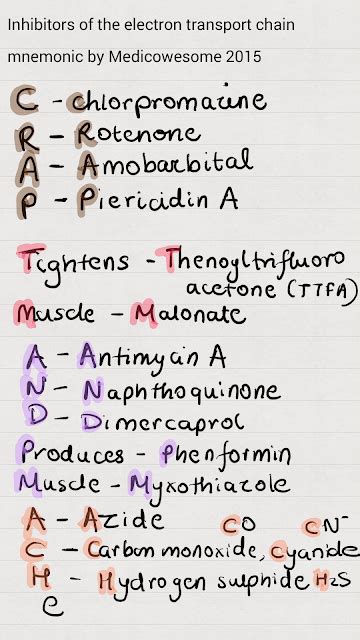 Inhibitors of the electron transport chain
mnemonic by Medicowesome 2015
C - Chlorpromazine
R - Rotenone
A - Amobarbital
P - Piericidin A
Tightens - Thenoyltrifluoro
acetone (TTFA)
Muscle - Malonate
A - Antimycin A
N - Naphthoquinone
D - Dimercaprol
Produces - Phenformin
Muscle - Myxothiazole
A - Azide CO CN⁻
C - Carbon monoxide, Cyanide
H - Hydrogen sulphide H2S
e